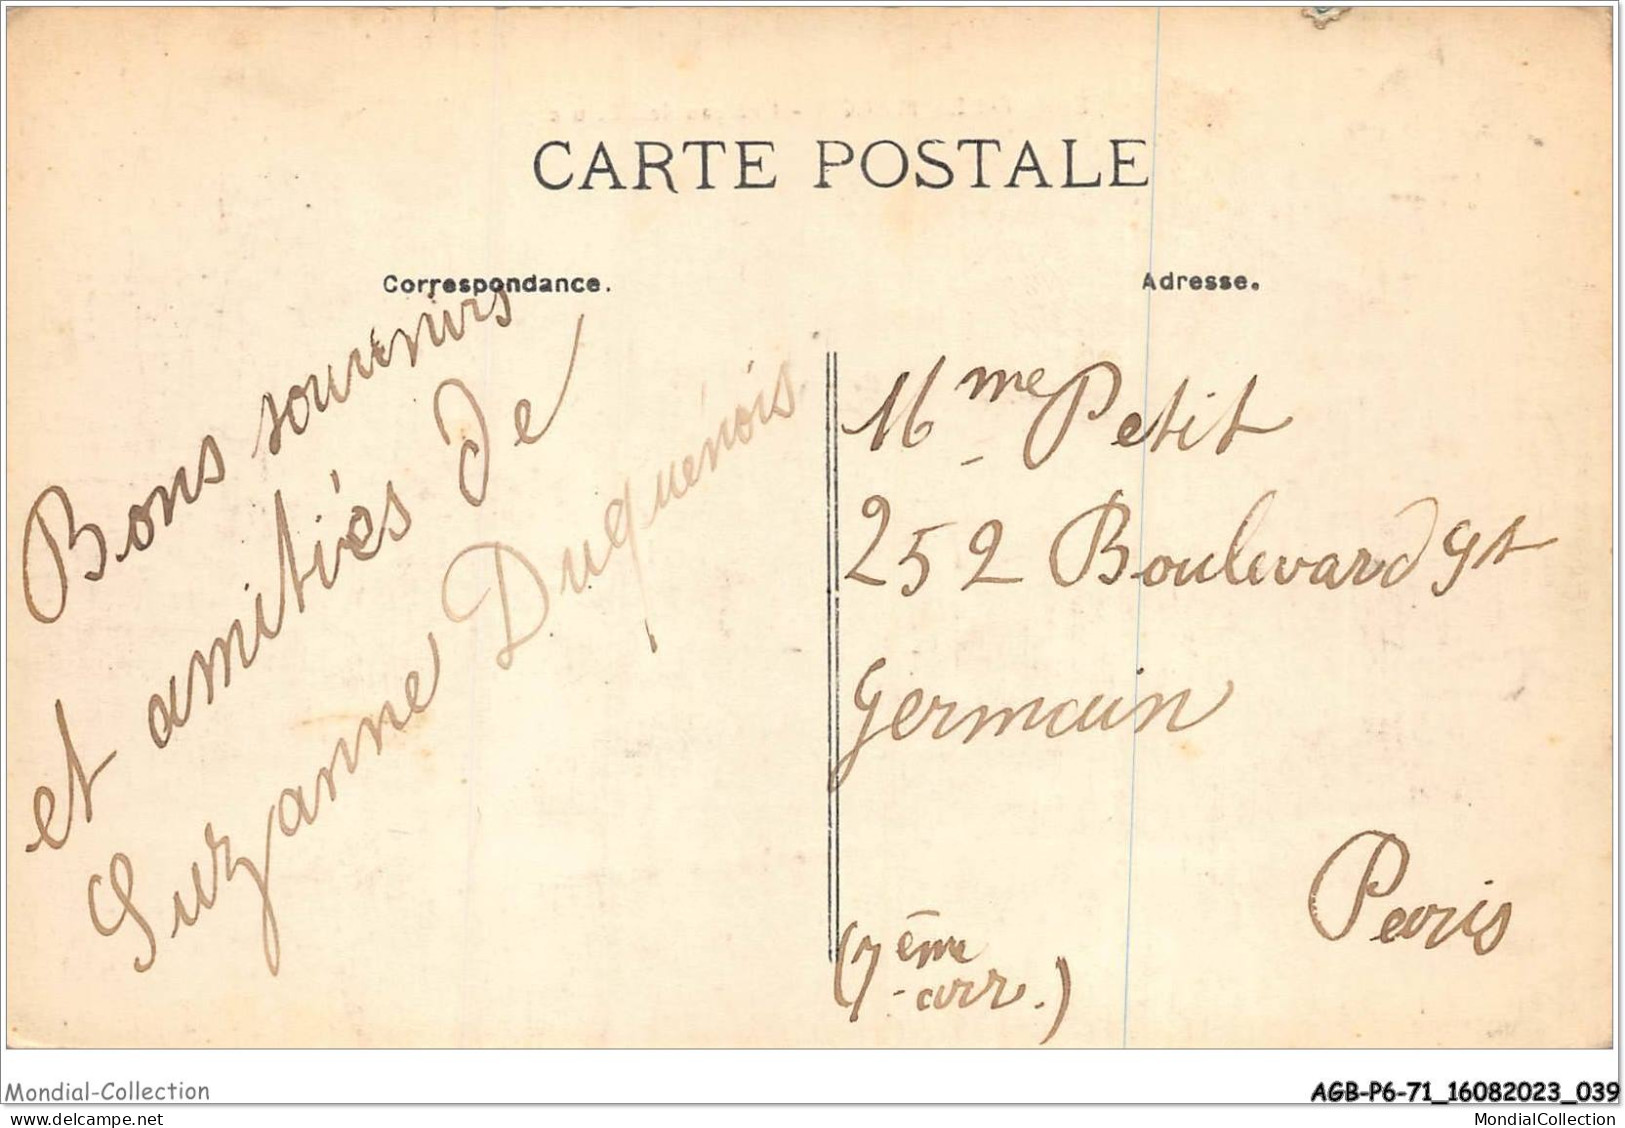 CARTE POSTALE
Correspondance.
Bons souvenirs
et amitiés de
Suzanne Duquénois
Adresse.
Mme Petit
252 Boulevard St
Germain
Paris
(7ème
arr.)
Mondial-Collection
AGB-P6-71_16082023_039
MondialCollection